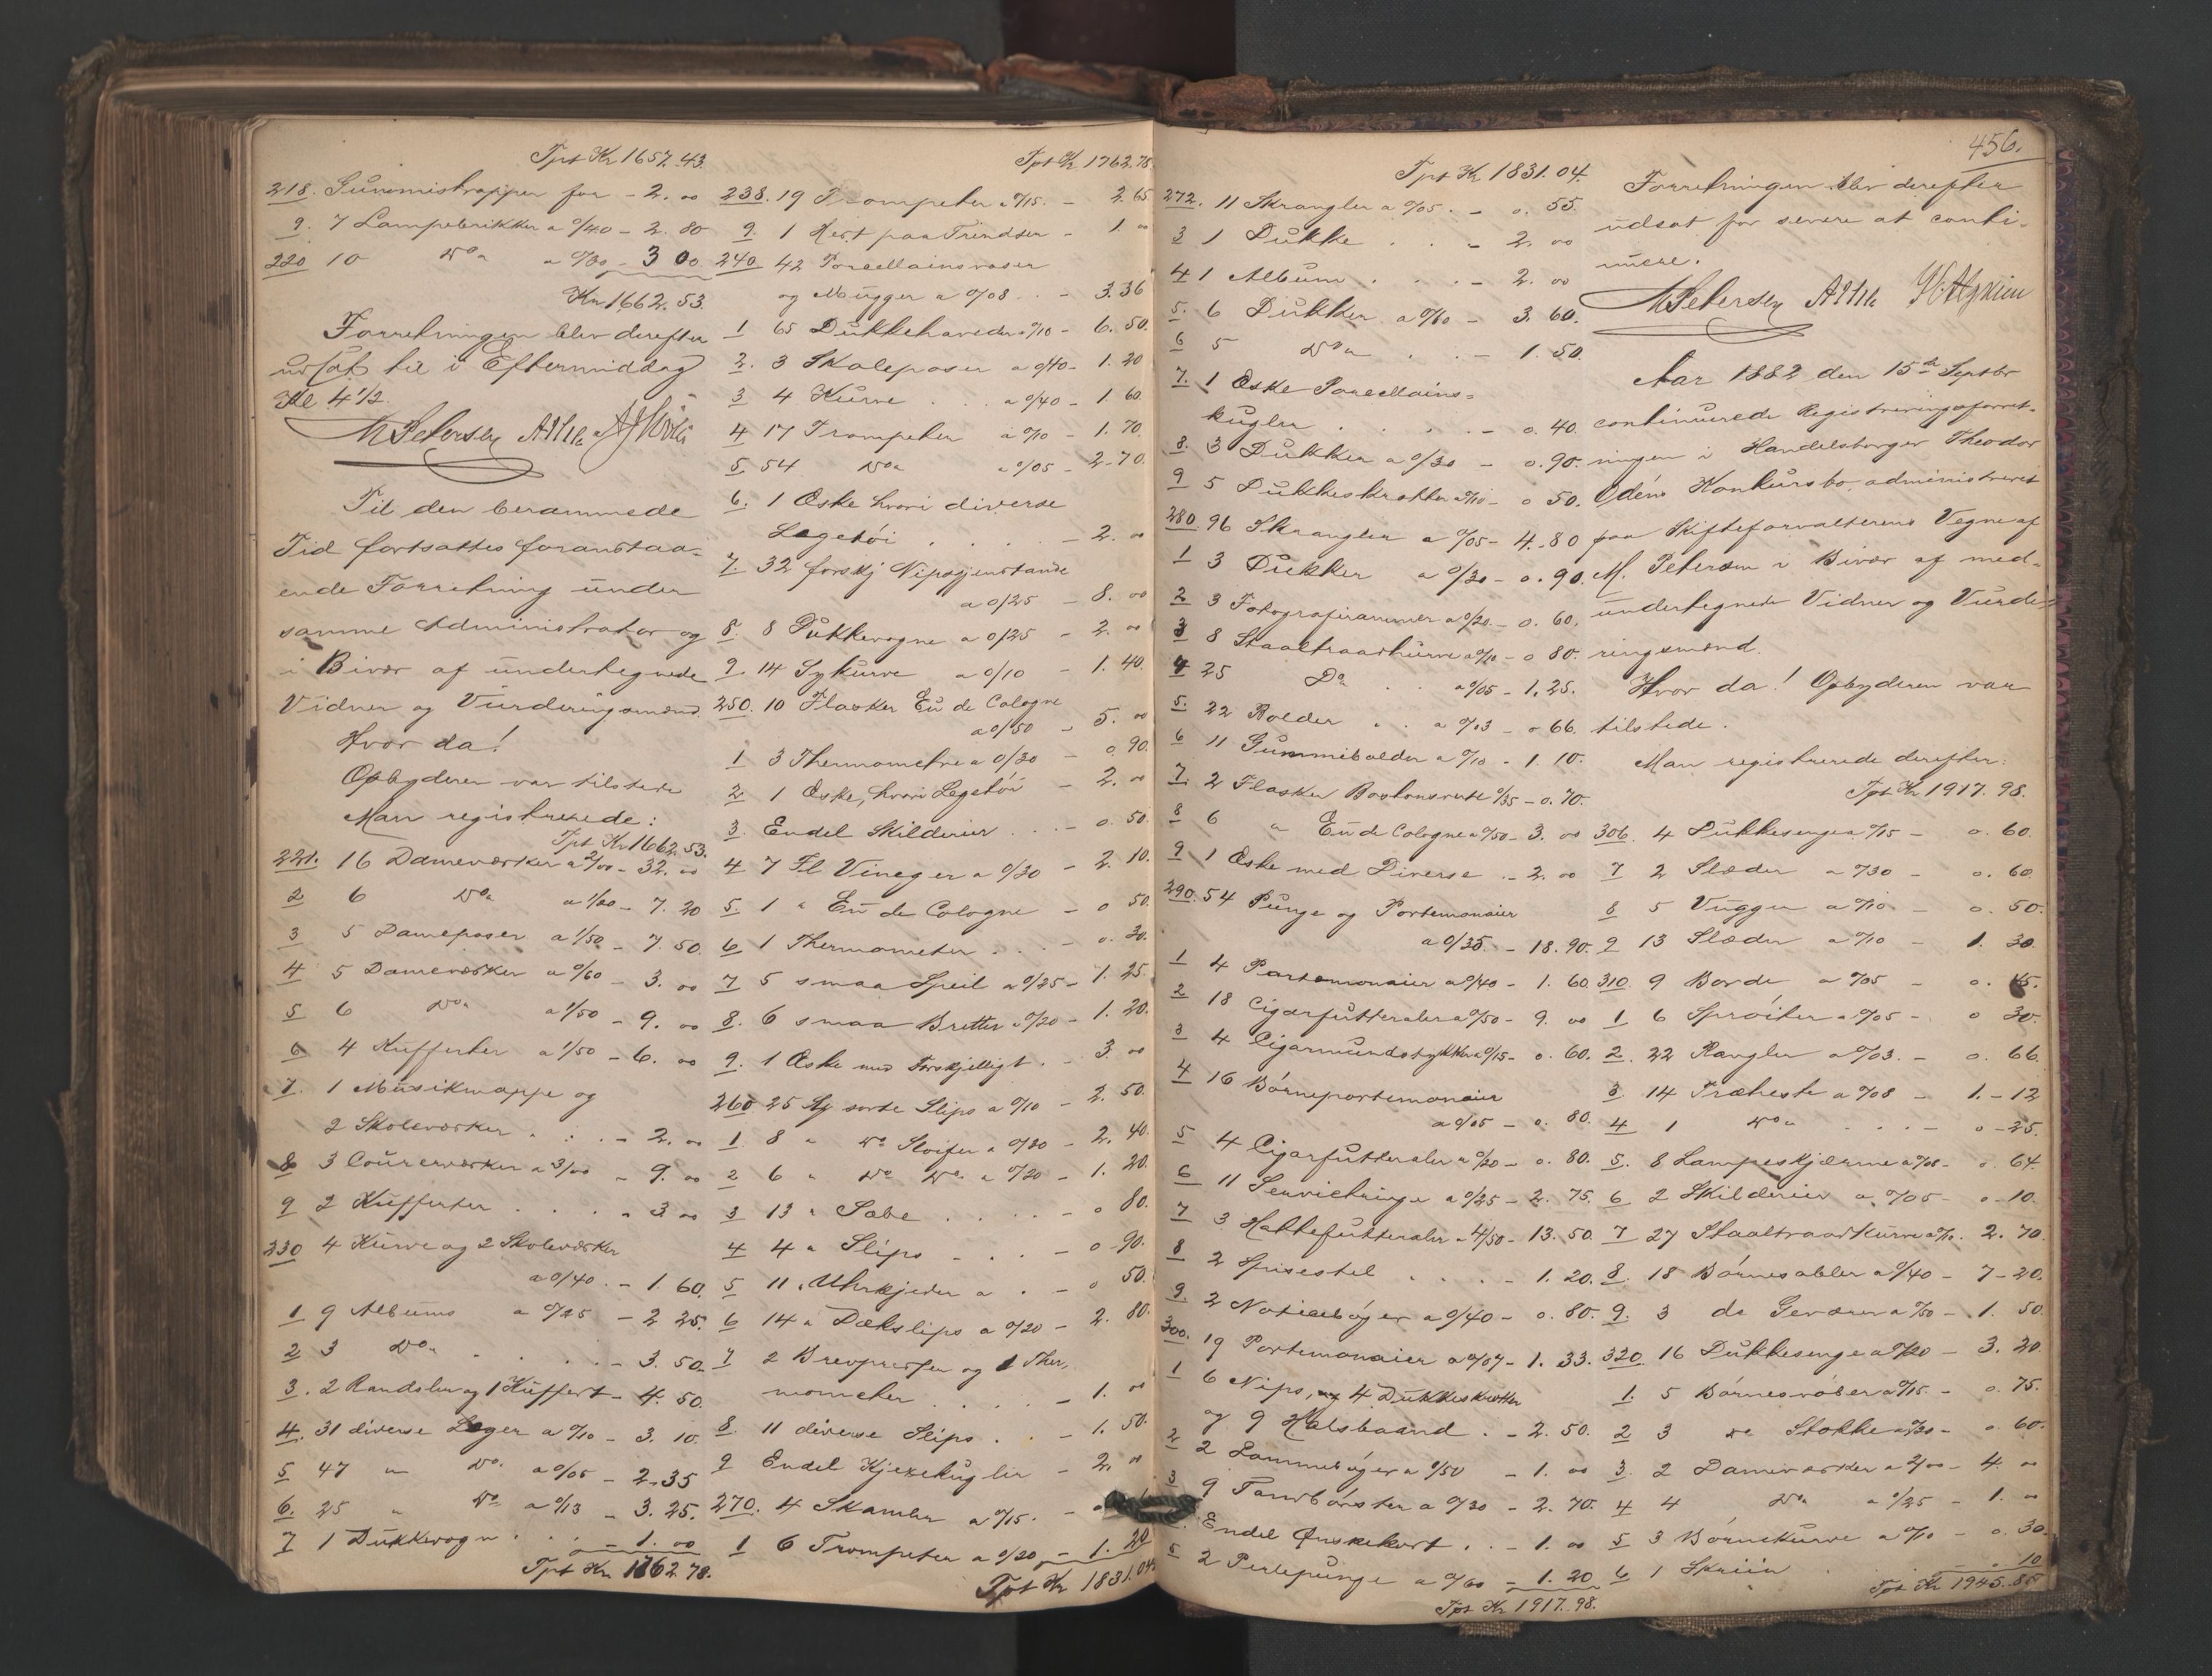 Tpt Kr 1657.43.
218. Gummistrapper for - 2. 00
9. 7 Lampebrikker a 0/40 - 2. 80
220 10 Do a 0/30 - 3 00
Kr 1662.53.
Forretningen blev derefter
udsat til i Eftermiddag
Kl 4 1/2.
M Petersen
Til den berammede
Tid fortsattes foranstaa-
ende Forretning under
samme Administrator og
i Bivær af undertegnede
Vidner og Vurderingsmænd.
Hvor da!
Opbyderen var tilstede
Man registrerede:
Tpt Kr 1662.53.
221. 16 Damevæsker a 2/00 - 32. 00
2 6 Do a 1/20 - 7. 20
3 5 Dameposer a 1/50 - 7. 50
4 5 Damevæsker a 0/60 - 3. 00
5 6 Do a 1/50 - 9. 00
6 4 Kufferter a 1/50 - 6. 00
7. 1 Musikmappe og
2 Skolevæsker . . . - 2. 00
8 3 Courervæsker a 3/00 - 9. 00
9 2 Kufferter . . . . - 3. 00
230 4 Kurve og 2 Skolevæsker
a 0/40 . - 1. 60.
1 9 Albums a 0/25 - 2 25.
2 3 Do . . . . - 3. 50.
3. 2 Randsler og 1 Kuffert - 4. 50.
4. 31 diverse Leger a 0/10 - 3. 10.
5 47 " Do a 0/05 - 2.35
6. 25 " Do a 0/13 - 3. 25.
7 1 Dukkevogn . . . - 1. 00
Tpt Kr 1762.78.
Tpt Kr 1762.78.
238. 19 Trompeter a 0/15. - 2. 65
9. 1 Hest paa Trindser - 1 00
240 42 Porcellainsvaser
og Mugger a 0/08 . . - 3.36
1 65 Dukkehoveder a 0/10 - 6. 50.
2. 3 Skoleposer a 0/40 - 1. 20
3 4 Kurve . . a 0/40 - 1 60.
4 17 Trompeter a 0/10 - 1. 70.
5 54 Do a 0/05 - 2.70.
6. 1 Æske hvori diverse
Legetøi . . . . - 2. 00
7. 32 forskj Nipsgjenstande
a 0/25 - 8. 00
8. 8 Dukkevogne a 0/25 - 2. 00
9. 14 Sykurve a 0/10 - 1. 40.
250. 10 Flasker Eu de Cologne
a 0/50 - 5. 00
1 3 Thermometre a 0/30 - 0 90.
2 1 Æske, hvori Legetøi - 2. 00
3. Endel Skilderier . . . - 0. 50.
4 7 Fl Vineger a 0/30 - 2. 10.
5. 1 " Eu de Cologne - 0 50.
6 1 Thermometer . . . - 0. 30.
7 5 smaa Speil a 0/25 - 1. 25.
8. 6 smaa Bretter a 0/20 - 1. 20.
9. 1 Æske med Forskjelligt . - 3. 00
260 25 sorte Slips a 0/10 - 2. 50.
1. 8 " Do Sloifer a 0/30 - 2. 40.
2 6 " Do Do a 0/20 - 1. 20.
3 13 " Sæbe . . . . - 0 80.
4 4 " Slips - . . - 0 90.
5 11 " Uhrkjeder a . - 0 50.
6 14 " Dækslips a 0/20 - 2. 80.
7 2 Brevpresser og 1 Ther,
mometer . . . . - 1. 00
8. 11 diverse Slips . . - 1. 50.
9 Endel Kjezekugler - 2. 00
270. 4 Skamler a 0/15. -
1 6 Trompeter a 0/20 - 1. 20
Tpt Kr 1831.04
456.
Tpt Kr 1831.04.
272. 11 Skrangler a 0/05 . - 0. 55.
3 1 Dukke . . - 2. 00
4 1 Album . . . . - 2. 00
5. 6 Dukker a 0/60 - 3. 60.
6 5 Do . . - 1. 50.
7. 1 Æske Porcellains-
kugler . . . . - 0. 40.
8. 3 Dukker a 0/30 - 0. 90.
9 5 Dukkeskrotter a 0/10 - 0 50.
280. 96 Skrangler a 0/05 - 4. 80
1 3 Dukker a 0/30 - 0. 90.
2 3 Fotografirammer a 0/20 - 0. 60.
3 8 Staaltraadkurve a 0/10 - 0 80.
4 25 Do . . a 0/05 - 1.25.
5. 22 Bolder . . a 0/03 - 0 66.
6 11 Gummibolder a 0/10 - 1. 10.
7. 2 Flasker Bostonsvert 0/35 - 0. 70.
8 6 " Eu de Cologne a 0/50 - 3. 00
9 1 Æske med Diverse . - 2. 00
290. 54 Punge og Portemonaier
a 0/35. - 18. 90.
1 4 Portemonaier a 0/40 - 1. 60
2 18 Cigarfutteraler a 0/50 - 9. 00
3 4 Cigarmundstykker a 0/15 - 0. 60.
4 16 Børneportemonaier
a 0/05 - 0. 80.
5 4 Cigarfutteraler a 0/20 - 0. 80.
6 11 Servietringe a 0/25 - 2. 75.
7 3 Hattefutteraler a 4/50 - 13. 50.
8 2 Spisestel . . . . - 1. 20.
9. 2 Noticebøger a 0/40 - 0. 80.
300. 19 Portemonaier a 0/07 - 1. 33.
1 6 Nips, og 4 Dukkeskrotter
og 9 Halsbaand . - 2. 50.
2 2 Lommebøger a 0/50 - 1. 00
3 9 Tandbørster a 0/30 - 2. 70.
Endel Ønskekort . . - 1. 00
5 2 Perlepunge a 0/60 - 1. 20
Tpt Kr 1917.98.
Forretningen blev derefter
udsat for senere at conti-
nuere.
M Petersen
Aar 1882 den 15de Septbr
continuerede Registreringsforret-
ningen i Handelsborger Theodor
Odéns Konkursbo administreret
paa Skifteforvalterens Vegne af
M. Petersen i Bivær af med-
undertegnede Vidner og Vurde-
ringsmænd.
Hvor da! Opbyderen var
tilstede.
Man registrerede derefter:
Tpt Kr 1917.98.
306. 4 Dukkesenge a 0/15 - 0. 60.
7 2 Slæder a 0/30 - 0. 60.
8 5 Vugger a 0/10 - 0. 50.
9 13 Slæder a 0/10 - 1. 30.
310. 9 Borde a 0/05 - 0. 45.
1 6 Sprøiter a 0/05 - 0 30.
2. 22 Rangler a 0/03. - 0. 66.
3. 14 Træheste a 0/08 - 1. - 12
4 1 Do . . . - 0 - 25.
5. 8 Lampeskjærme a 0/08 - 0. 64.
6 2 Skilderier a 0/05 - 0 10.
7 27 Staaltraadkurve a 0/10. 2. 70.
8. 18 Børnesabler a 0/40 - 7 - 20.
9. 3 do Geværer a 0/50 - 1. 50.
320. 16 Dukkesenge a 0/20 - 3. 20.
1. 5 Børnesvøber a 0/15. - 0. 75.
2 3 do Stokke a 0/20 - 0. 60.
3. 2 Damevæsker a 2/00 - 4. 00
4 4 Do a 0/25 - 1. 00
5 3 Børnekurve a 0/10 - 0. 30.
6 1 Skriin . - 0 10
Tpt Kr 1945.85